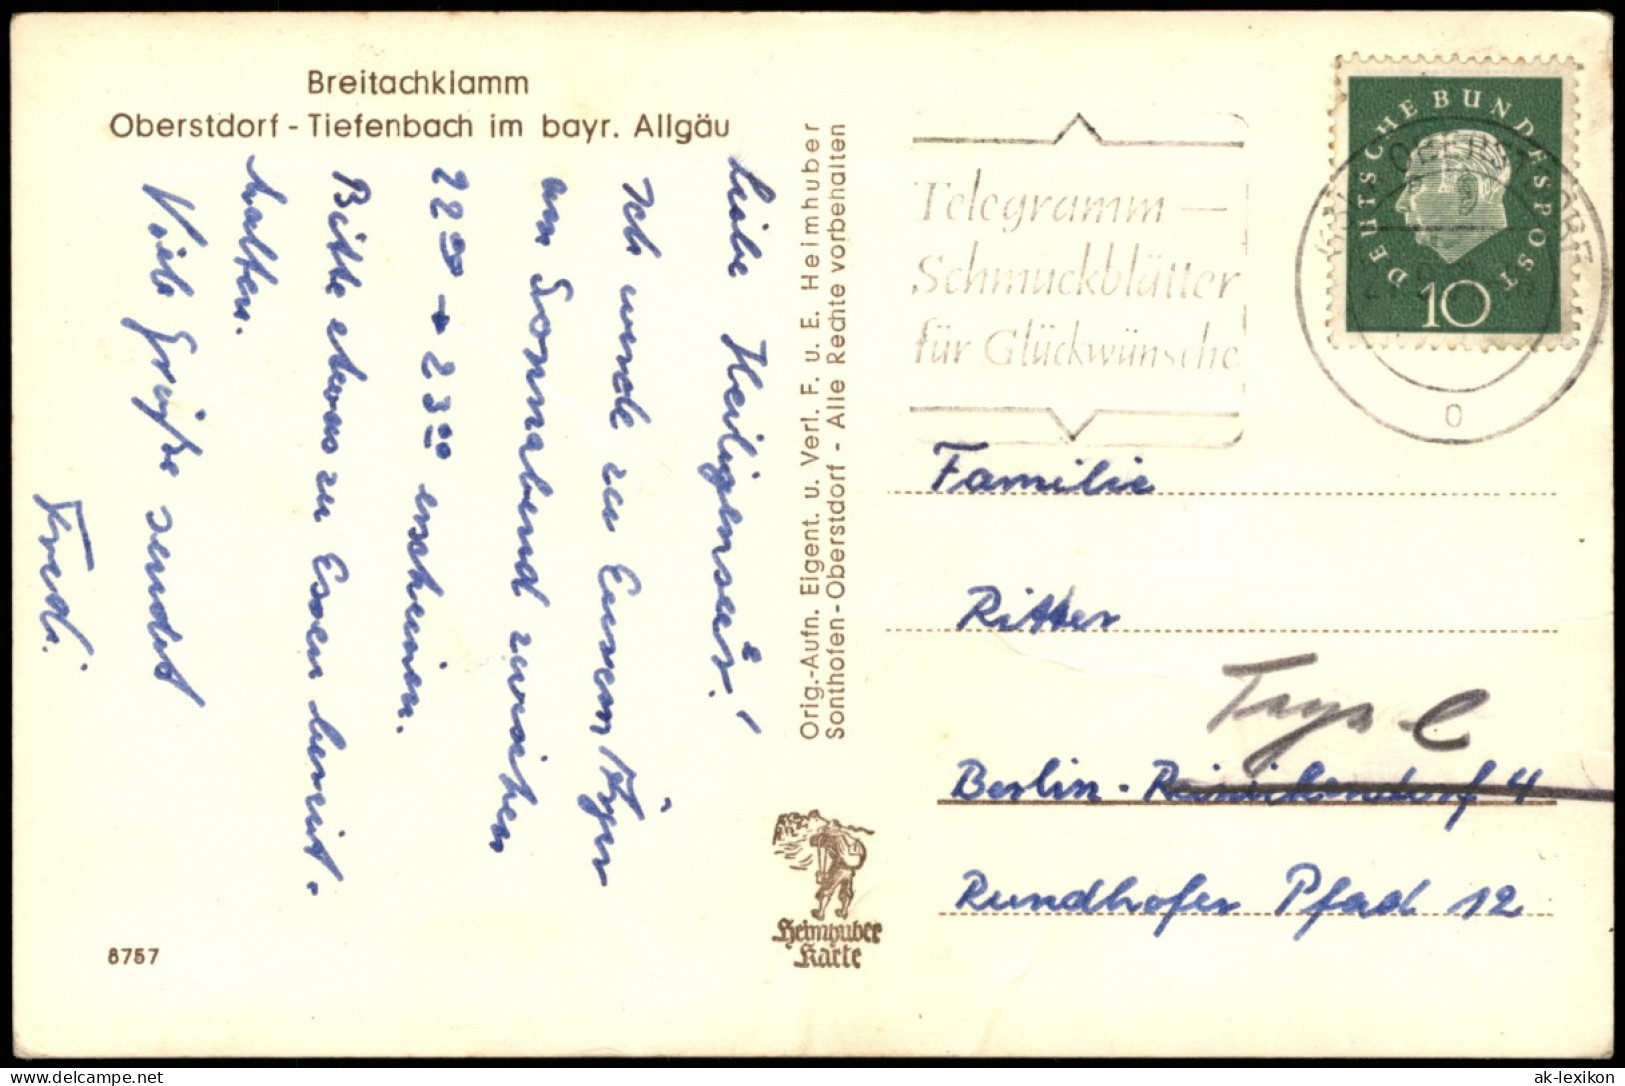 Breitachklamm
Oberstdorf - Tiefenbach im bayr. Allgäu
Liebe Heiligenseer!
Ich werde zu Eurem
am Sonnabend zwischen
22 00 → 23 00 erscheinen.
Bitte etwas zu Essen bereit.
halten.
Viele Grüße sendet
Fredi
8757
Orig.-Aufn. Eigent. u. Verl. F. u. E. Heimhuber
Sonthofen-Oberstdorf - Alle Rechte vorbehalten
Heimhuber
Karte
Telegramm —
Schmuckblätter
für Glückwünsche
DEUTSCHE BUNDESPOST
10
OBERSTDORF
o
Familie
Ritter
Tegel
Berlin - Reinickendorf 4
Rundhofer Pfad 12
www.delcampe.net
ak-lexikon